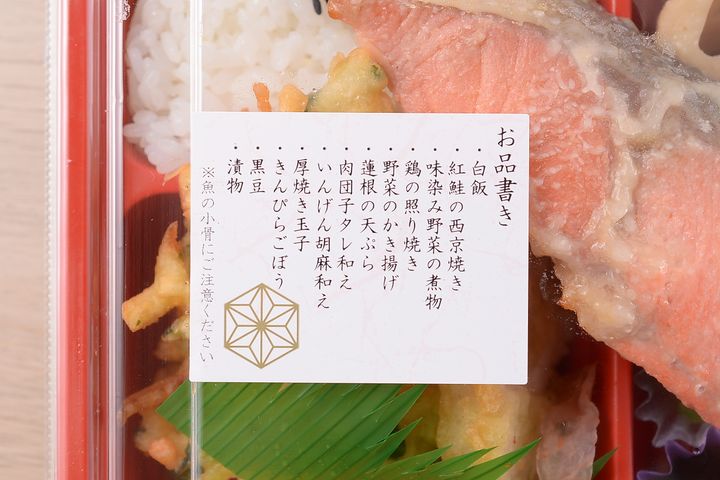 お品書き
・白飯
・紅鮭の西京焼き
・味染み野菜の煮物
・鶏の照り焼き
・野菜のかき揚げ
・蓮根の天ぷら
・肉団子タレ和え
・いんげん胡麻和え
・厚焼き玉子
・きんぴらごぼう
・黒豆
・漬物
※魚の小骨にご注意ください